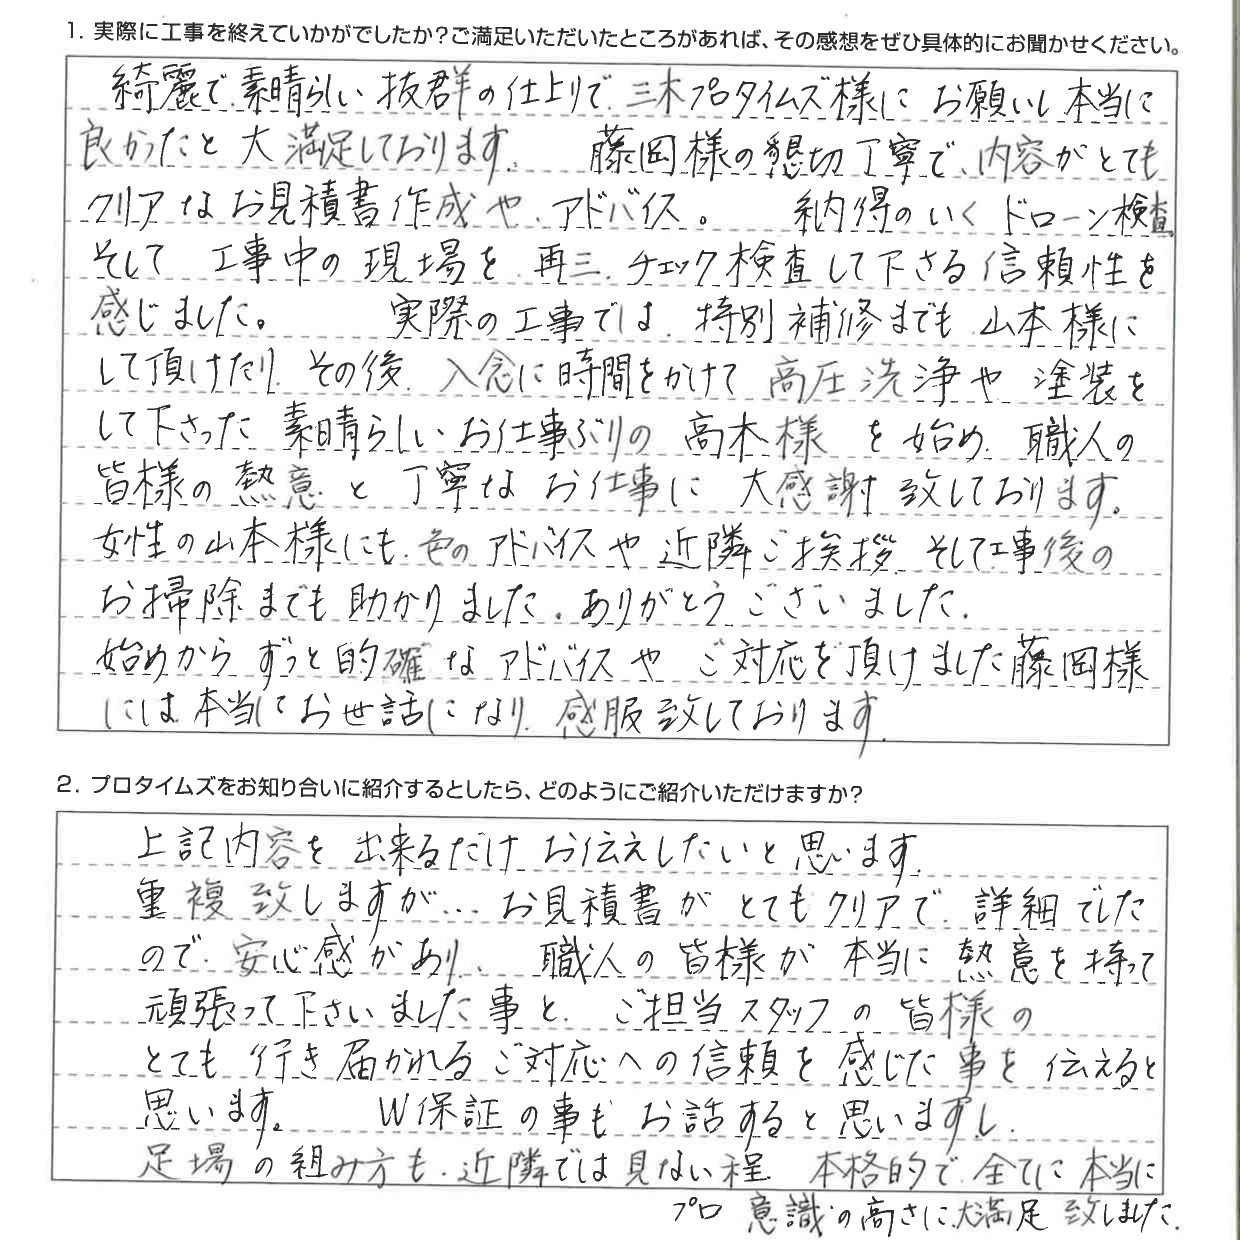 1. 実際に工事を終えていかがでしたか?ご満足いただいたところがあれば、その感想をぜひ具体的にお聞かせください。
綺麗で、素晴らしい抜群の仕上りで、三木プロタイムズ様にお願いし本当に
良かったと大満足しております。 藤岡様の懇切丁寧で、内容がとても
クリアなお見積書作成や、アドバイス。 納得のいくドローン検査、
そして 工事中の現場を、再三、チェック検査して下さる信頼性を
感じました。 実際の工事では、特別補修までも、山本様に
して頂けたり、その後、入念に時間をかけて高圧洗浄や 塗装を
して下さった 素晴らしいお仕事ぶりの 高木様 を始め、職人の
皆様の熱意と丁寧なお仕事に 大感謝致しております。
女性の山本様にも、色のアドバイスや近隣ご挨拶、そして工事後の
お掃除までも助かりました。ありがとうございました。
始めからずっと的確なアドバイスや ご対応を頂けました藤岡様
には、本当にお世話になり、感服致しております。
2. プロタイムズをお知り合いに紹介するとしたら、どのようにご紹介いただけますか?
上記内容を出来るだけお伝えしたいと思います。
重複致しますが… お見積書がとてもクリアで、詳細でした
ので、安心感があり、 職人の皆様が本当に熱意を持って
頑張って下さいました事と、ご担当スタッフの皆様の
とても行き届かれるご対応への信頼を感じた事を伝えると
思います。 W保証の事もお話すると思いますし、
足場の組み方も、近隣では見ない程、本格的で、全てに本当に
プロ意識の高さに、大満足致しました。